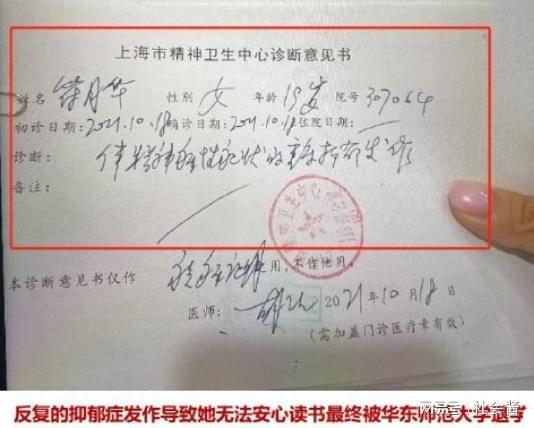 上海市精神卫生中心诊断意见书
姓名 月华 性别 女 年龄 19岁 院号 307064
初诊日期：2021.10.18 确诊日期：2021.10.18 住院日期：
诊断： 伴精神病性症状的重度抑郁发作
备注：
本诊断意见书仅作 用，不作他用。
医师： 2021年10月18日
（需加盖门诊医疗章有效）
反复的抑郁症发作导致她无法安心读书最终被华东师范大学退学
搜狐号@社会酱